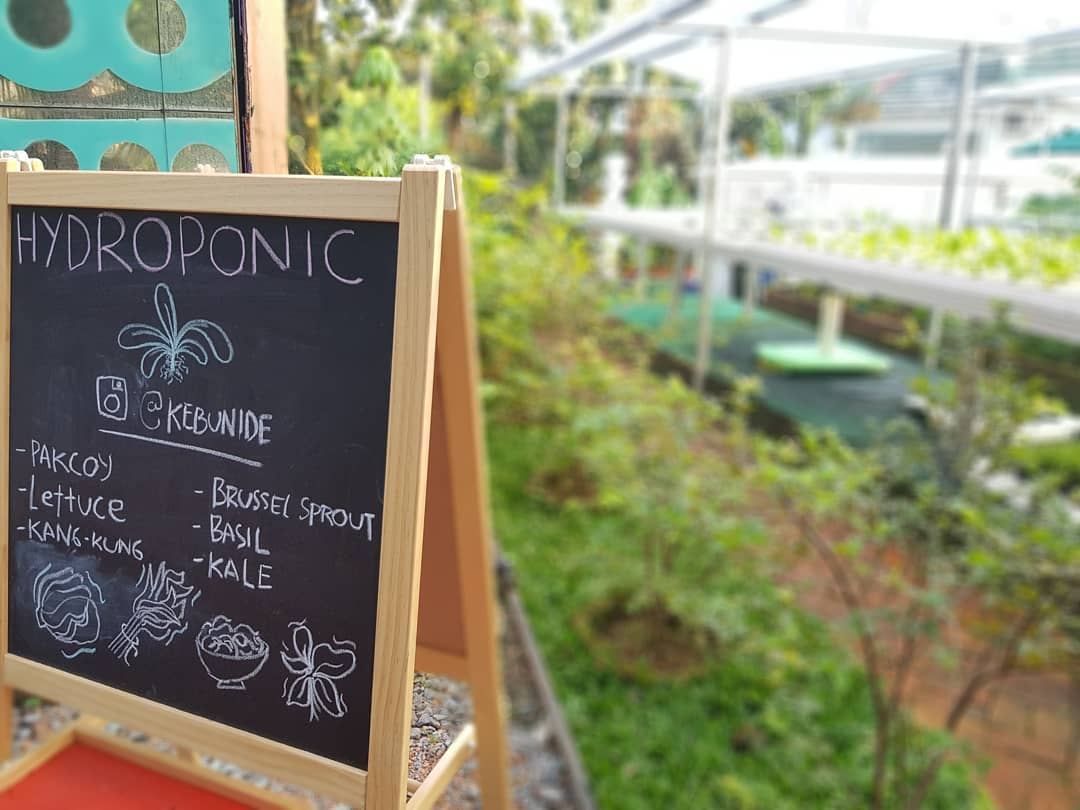 HYDROPONIC
@KEBUNIDE
-PAKCOY
-Lettuce
-KANG-KUNG
-BRUSSEL SPROUT
-BASIL
-KALE